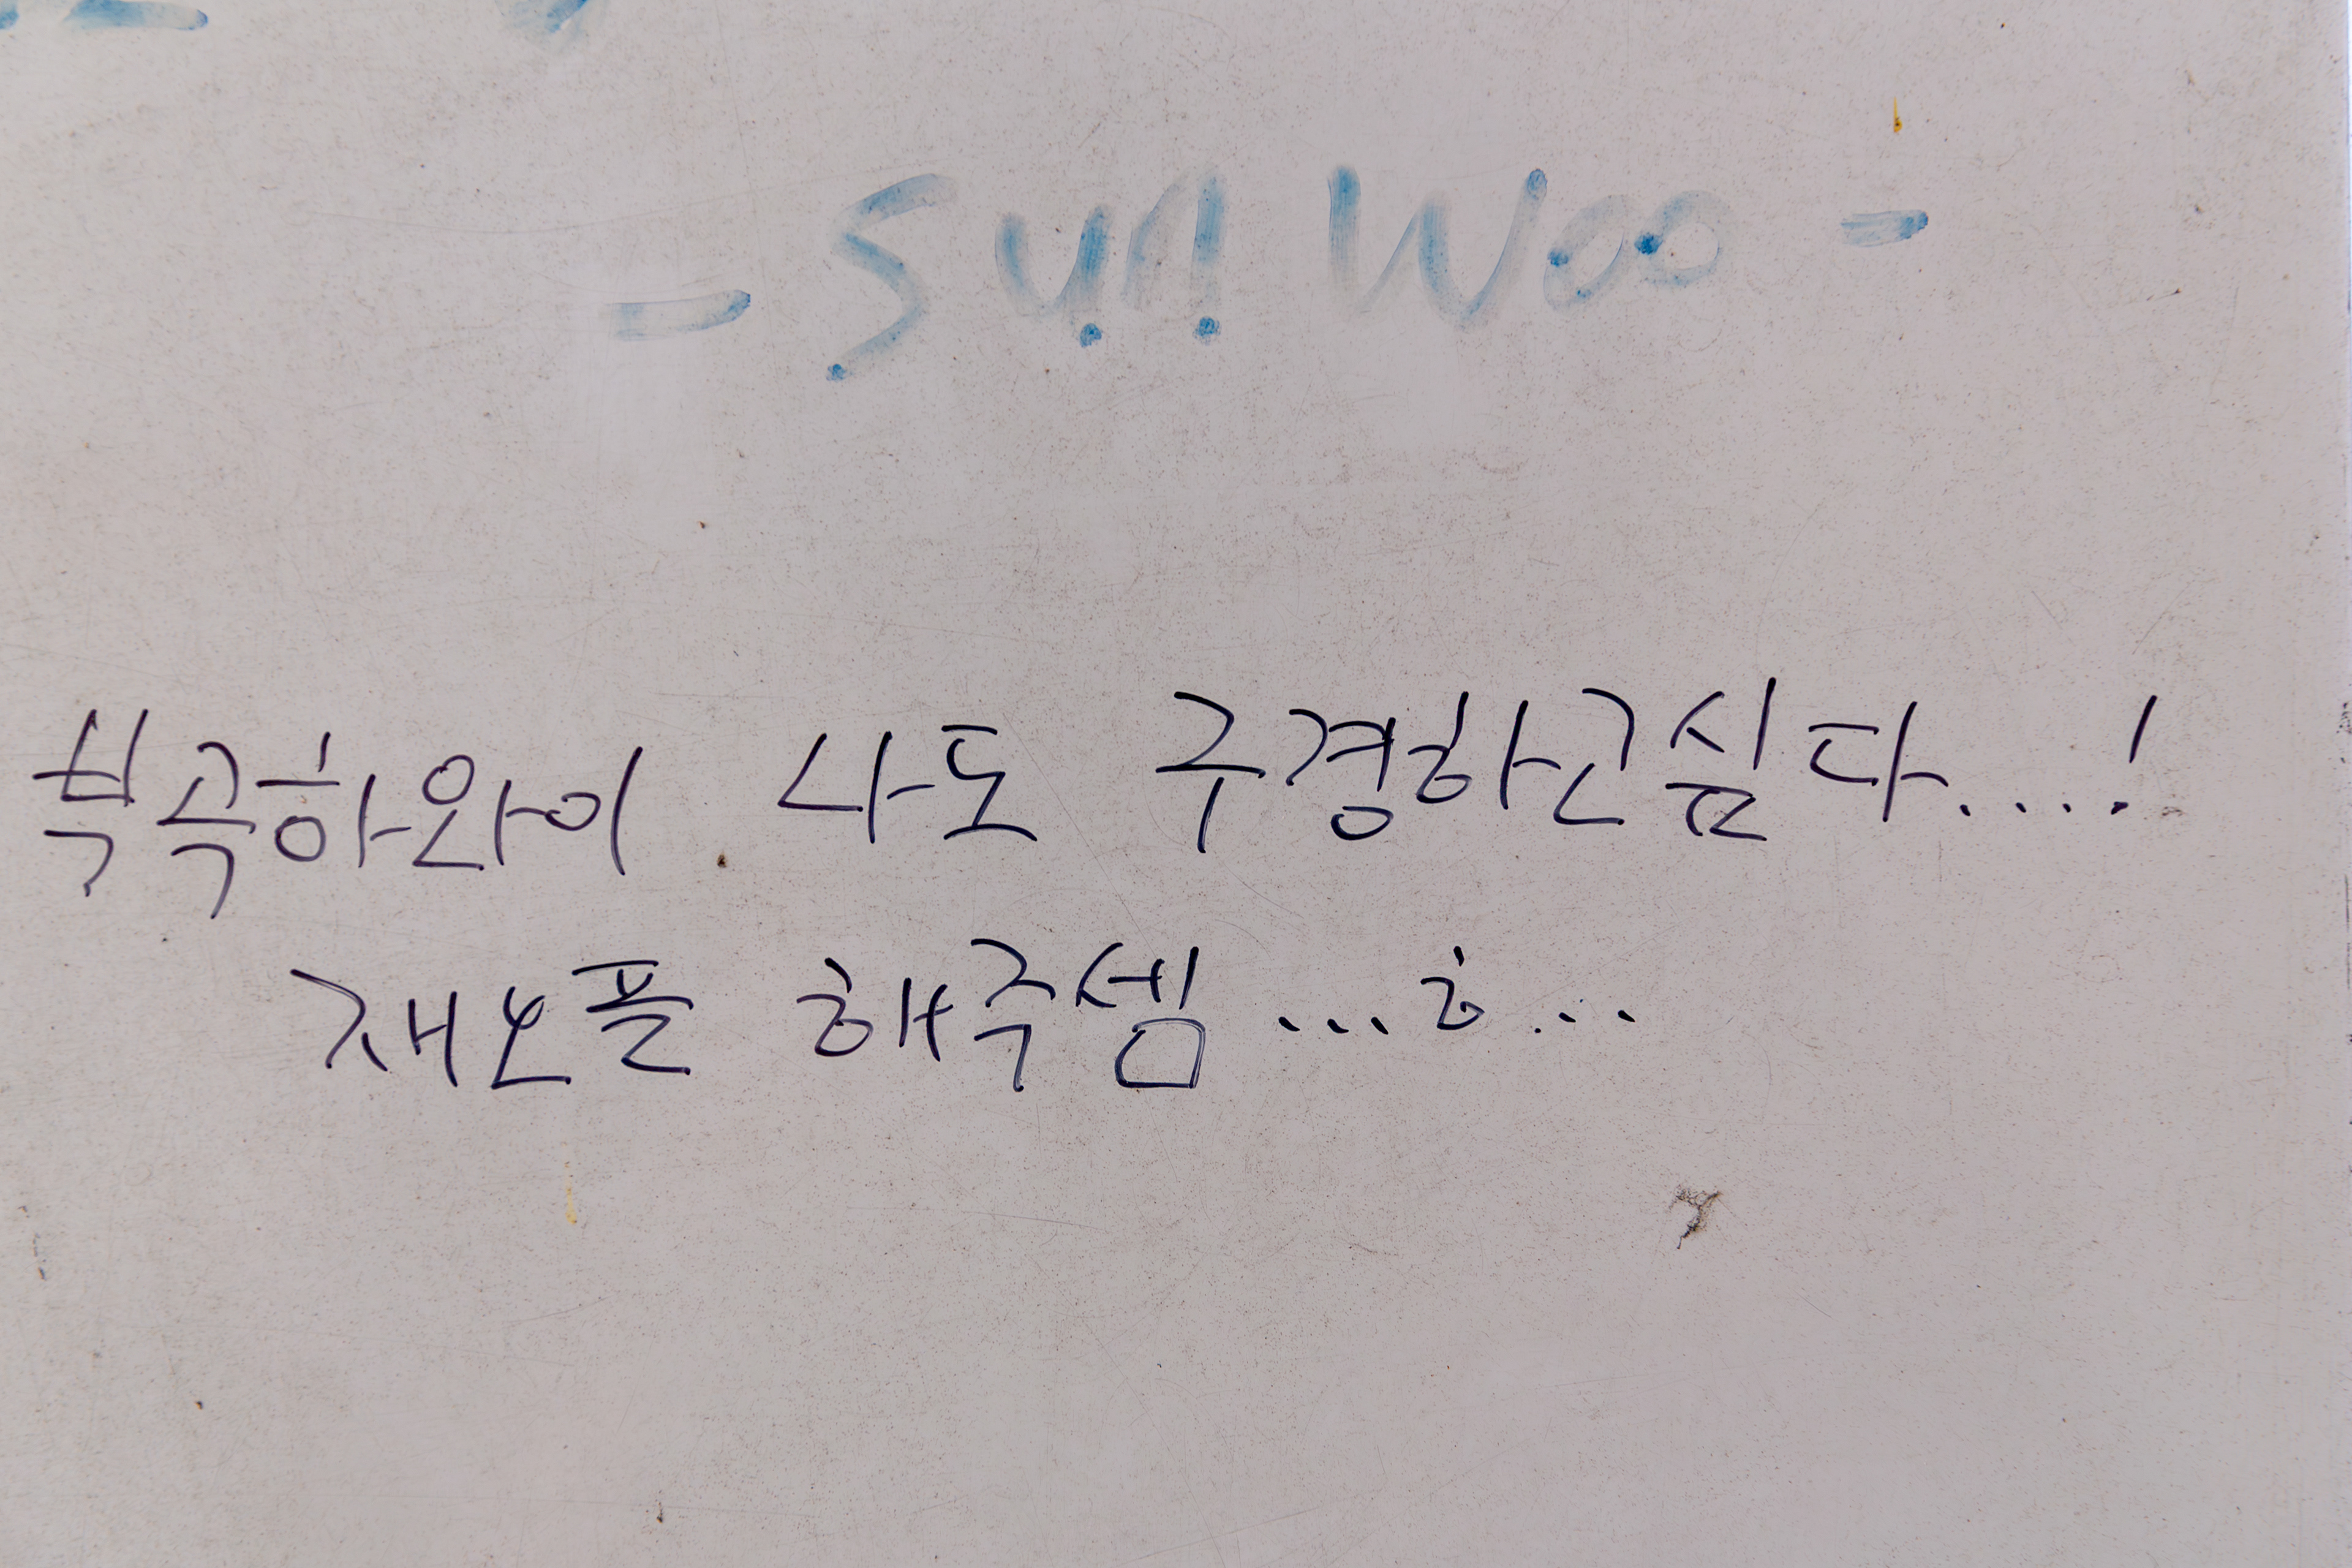 - Sun Woo -
북곡하와이 나도 구경하고싶다....!
재오픈 해주셈...ㅎ...